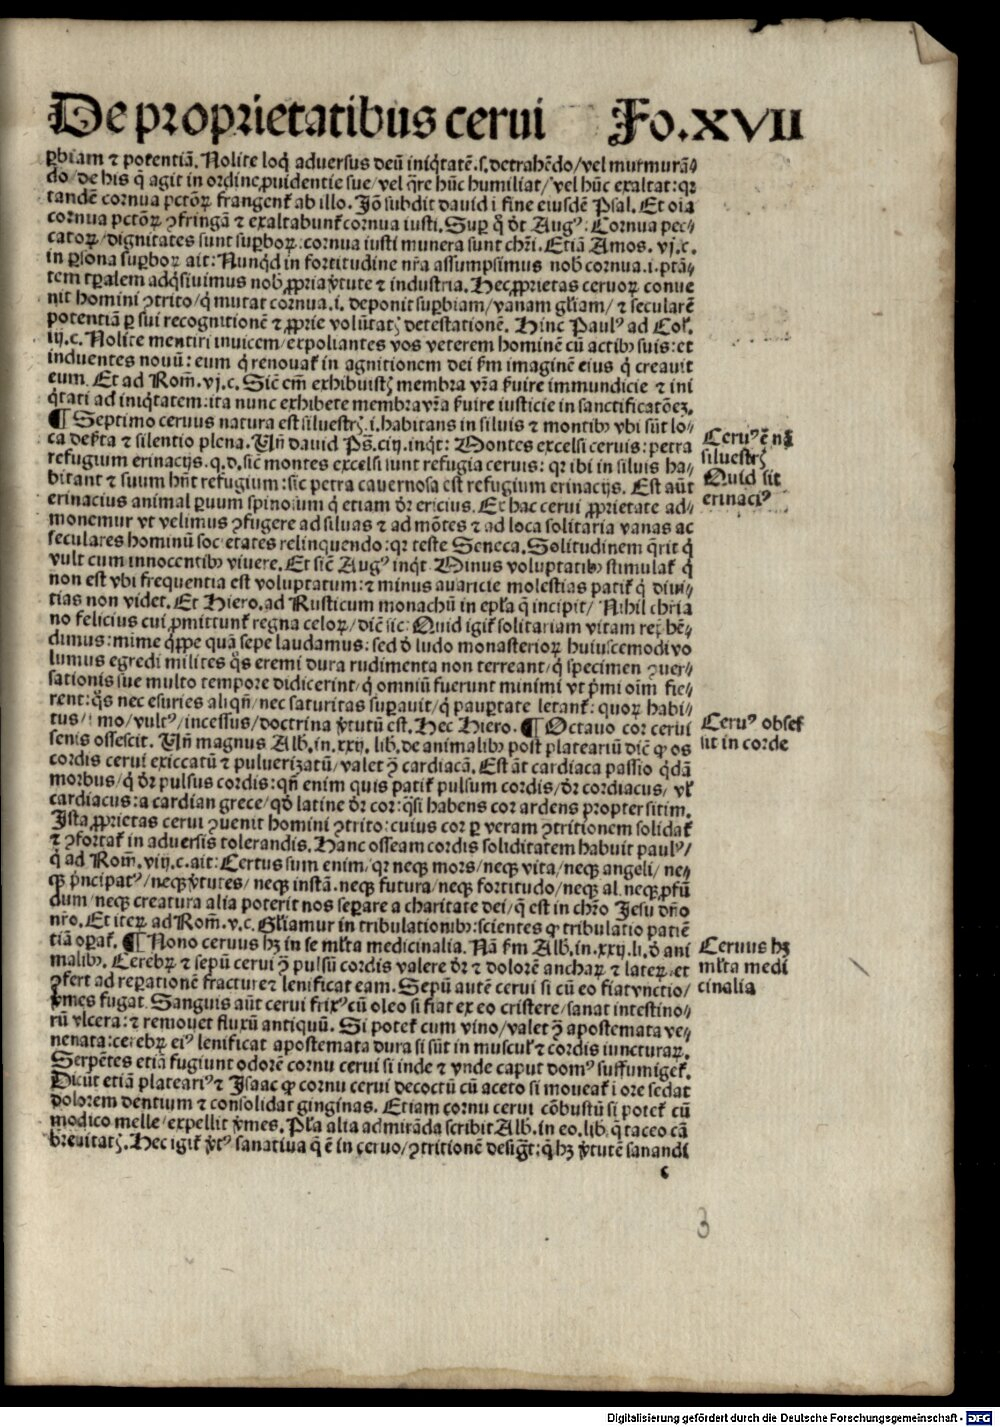 De proprietatibus cerui Fo.XVII
ꝑbiam ⁊ potentiã. Nolite loq̇ aduersus deũ iniq̇tatẽ.s. detrahẽdo/vel murmurã⸗
do/de his q̄ agit in ordine ꝓuidentie sue/vel q̄re hũc humiliat/vel hũc exaltat: qꝛ
tandẽ cornua pctõꝝ frangent᷑ ab illo. Jõ subdit dauid i fine eiusdẽ Psal. Et oĩa
cornua pctõꝝ ꝯfringã ⁊ exaltabunt᷑ cornua iusti. Suꝑ q̄ dt̃ Augꝰ: Cornua pec⸗
catoꝝ/dignitates sunt suꝑboꝝ: cornua iusti munera sunt chr̃i. Etiã Amos. vj.c.
in ꝑsona suꝑboꝝ ait: Nunq̇d in fortitudine nr̃a assumpsimus nob̃ cornua.i.ptã⸗
tem tꝑalem adq̇siuimus nob̃ ꝓpria v̓tute ⁊ industria. Hec ꝓprietas ceruoꝝ conue
nit homini ꝯtrito/q̇ mutat cornua.i. deponit suꝑbiam/vanam gl̃iam/⁊ secularẽ
potentiã ꝑ sui recognitionẽ ⁊ ꝓprie volũtatꝭ detestationẽ. Hinc Paulꝰ ad Col̃.
iij.c. Nolite mentiri inuicem/expoliantes vos veterem hominẽ cũ actibꝰ suis: et
induentes nouũ: eum q̇ renouat᷑ in agnitionem dei ẜm imaginẽ eius q̇ creauit
eum. Et ad Rom̃. vj.c. Sic̃ em̃ exhibuistꝭ membra vr̃a ẜuire immundicie ⁊ ini
q̇tati ad iniq̇tatem: ita nunc exhibete membra vr̃a ẜuire iusticie in sanctificatõeꝫ.
¶ Septimo ceruus natura est siluestrꝭ.i. habitans in siluis ⁊ montibꝰ vbi sũt lo⸗
ca deẜta ⁊ silentio plena. Vñ dauid Ps̃. ciij. inq̇t: Montes excelsi ceruis: petra
refugium erinacijs. q.d. sic̃ montes excelsi sunt refugia ceruis: qꝛ ibi in siluis ha⸗
bitant ⁊ suum hñt refugium: sic petra cauernosa est refugium erinacijs. Est aũt
erinacius animal paruum spinosum q̇ etiam dr̃ ericius. Ex hac cerui ꝓprietate ad⸗
monemur vt velimus ꝯfugere ad siluas ⁊ ad mõtes ⁊ ad loca solitaria vanas ac
seculares hominũ societates relinquendo: qꝛ teste Seneca. Solitudinem q̄rit q̇
vult cum innocentibꝰ viuere. Et sic̃ Augꝰ inq̇t. Minus voluptatibꝰ stimulat᷑ q̇
non est vbi frequentia est voluptatum: ⁊ minus auaricie molestias patit᷑ q̇ diui⸗
tias non videt. Et Hiero. ad Rusticum monachũ in epl̃a q̄ incipit/ Nihil chr̃ia
no felicius cui ꝓmittunt᷑ regna celoꝝ/ dic̃ sic: Quid igit᷑ solitariam vitam rep̃hẽ⸗
dimus: mime q̇ppe quã sepe laudamus: sed d̓ ludo monasterioꝝ huiuscemodi vo
lumus egredi milites q̇s eremi dura rudimenta non terreant/q̇ specimen ꝯuer⸗
sationis sue multo tempore didicerint/q̇ omniũ fuerunt minimi vt p̓mi oĩm fie⸗
rent: q̇s nec esuries aliqñ/nec saturitas suꝑauit/q̇ pauꝑtate letant᷑: quoꝝ habi⸗
tus/ẜmo/vultꝰ/incessus/doctrina v̓tutũ est. Hec Hiero. ¶ Octauo cor cerui
senis ossescit. Vñ magnus Alb̃. in. xxij. lib. de animalibꝰ post plateariũ dic̃ ꝙ os
cordis cerui exiccatũ ⁊ puluerizatũ/valet ꝯ̃ cardiacã. Est ãt cardiaca passio q̇dã
morbus/q̇ dr̃ pulsus cordis: qñ enim quis patit᷑ pulsum cordis/dr̃ cordiacus/ vl̃
cardiacus: a cardian grece/qd̓ latine dr̃ cor: q̃si habens cor ardens propter sitim.
Ista ꝓprietas cerui ꝯuenit homini ꝯtrito: cuius cor ꝑ veram ꝯtritionem solidat᷑
⁊ ꝯfortat᷑ in aduersis tolerandis. Hanc osseam cordis soliditatem habuit paulꝰ/
q̇ ad Rom̃. viij.c. ait: Certus sum enim/ qꝛ neqꝫ mors/neqꝫ vita/neqꝫ angeli/ ne⸗
qꝫ p̓ncipatꝰ/neqꝫ v̓tutes/ neqꝫ instã. neqꝫ futura/neqꝫ fortitudo/neqꝫ al. neqꝫ ꝓfũ
dum/neqꝫ creatura alia poterit nos seꝑare a charitate dei/q̄ est in chr̃o Jesu dñõ
nr̃o. Et iteꝝ ad Rom̃. v.c. Gl̃iamur in tribulationibꝰ: scientes ꝙ tribulatio patiẽ
tiã oꝑat᷑. ¶ Nono ceruus hꝫ in se ml̃ta medicinalia. Nã ẜm Alb̃. in. xxij. li. d̓ ani
malibꝰ. Cerebꝝ ⁊ sepũ cerui ꝯ̃ pulsũ cordis valere dr̃ ⁊ dolorẽ anchaꝝ ⁊ lateꝝ: et
ꝯfert ad reꝑationẽ fracture ⁊ lenificat eam. Sepũ autẽ cerui si cũ eo fiat vnctio/
v̓mes fugat. Sanguis aũt cerui frixꝰ cũ oleo si fiat ex eo cristere/sanat intestino⸗
rũ vlcera: ⁊ remouet fluxũ antiquũ. Si potet᷑ cum vino/valet ꝯ̃ apostemata ve⸗
nenata: cerebꝝ eiꝰ lenificat apostemata dura si sũt in muscul̃ ⁊ cordis iuncturaꝝ.
Serpẽtes etiã fugiunt odorẽ cornu cerui si inde ⁊ vnde caput domꝰ suffumiget᷑.
Dicũt etiã platearꝰ ⁊ Isaac ꝙ cornu cerui decoctũ cũ aceto si moueat᷑ i ore sedat
dolorem dentium ⁊ consolidat gingiuas. Etiam cornu cerui cõbustũ si potet᷑ cũ
modico melle/expellit v̓mes. Pl̃a alia admirãda scribit Alb̃. in eo. lib. q̄ taceo cã
breuitatꝭ. Hec igit᷑ v̓tꝰ sanatiua q̄ ẽ in ceruo/ꝯtritionẽ design̄t: q̄ hꝫ v̓tutẽ sanandi
c
Ceruꝰ ẽ nã
siluestrꝭ
Quid sit
erinaciꝰ
Ceruꝰ obsef
sit in corde
Ceruus hꝫ
ml̃ta medi
cinalia
3
Digitalisierung gefördert durch die Deutsche Forschungsgemeinschaft - DFG